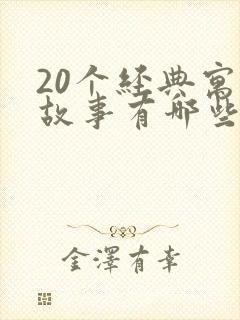 20个经典寓
故事有哪些
金澤有幸